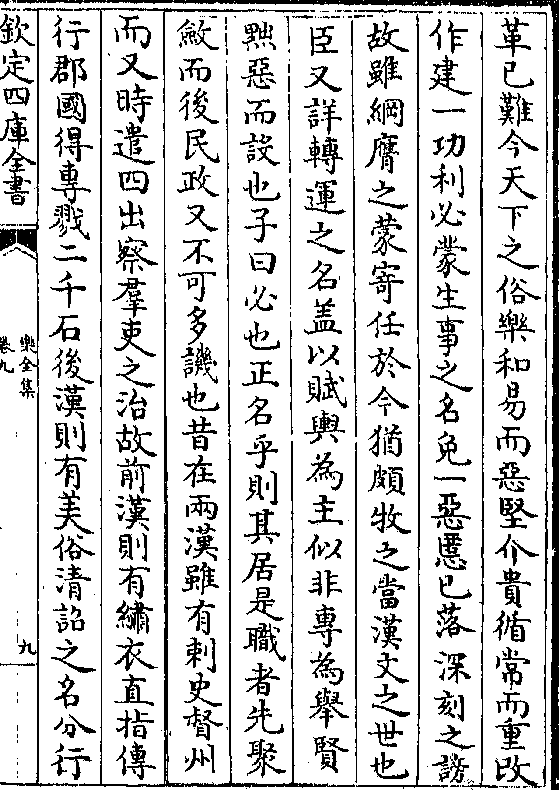 革已難今天下之俗樂和易而惡堅介貴循常而重改
作建一功利必蒙生事之名免一惡慝已落深刻之謗
故雖綱膺之蒙寄任於今猶頗牧之當漢文之世也
臣又詳轉運之名盖以賦輿為主似非專為舉賢
黜惡而設也子曰必也正名乎則其居是職者先聚
斂而後民政又不可多譏也昔在兩漢雖有刺史督州
而又時遣四出察羣吏之治故前漢則有繡衣直指傳
行郡國得專戮二千石後漢則有美俗清詔之名分行
欽定四庫全書
樂全集
卷九
九